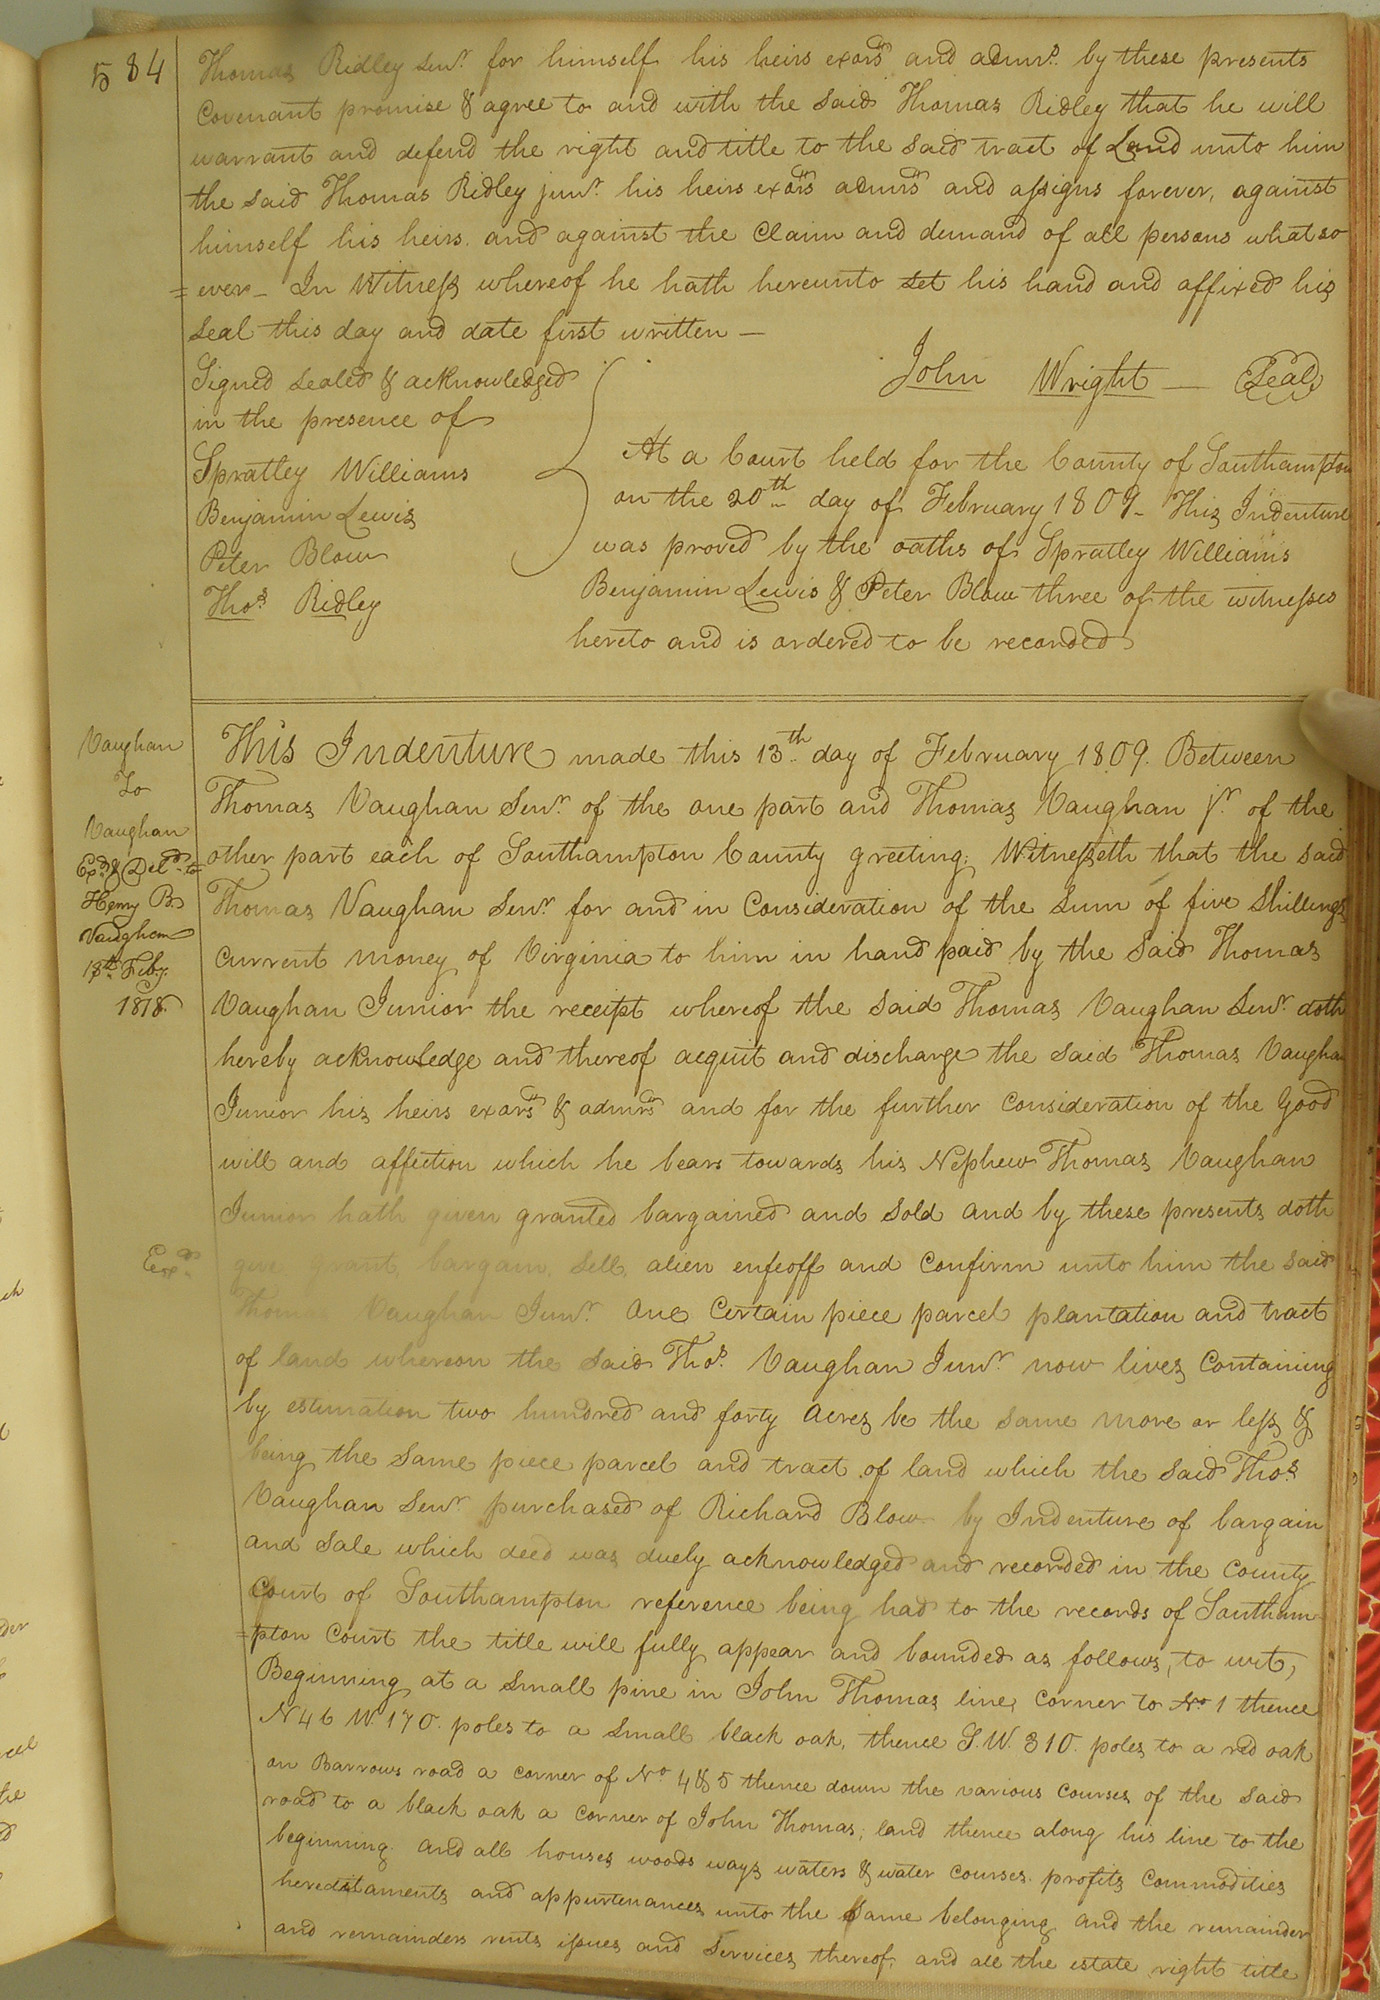 584
Thomas Ridley Senr. for himself his heirs exors and admrs. by these presents
Covenant promise & agree to and with the said Thomas Ridley that he will
warrant and defend the right and title to the said tract of Land unto him
the said Thomas Ridley junr. his heirs exors admrs and assigns forever, against
himself his heirs and against the Claim and demand of all persons whatso
=ever_ In Witness whereof he hath hereunto set his hand and affixed his
seal this day and date first written —
Signed sealed & acknowledged
in the presence of
Spratley Williams
Benjamin Lewis
Peter Blow
Thos. Ridley
John Wright — Seal
At a Court held for the County of Southampton
on the 20th day of February 1809_ This Indenture
was proved by the oaths of Spratley Williams
Benjamin Lewis & Peter Blow three of the witnesses
hereto and is ordered to be recorded
Vaughan
To
Vaughan
Exd. & Deld. to
Henry B.
Vaughan
18th Feby.
1818.
Exd.
This Indenture made this 13th day of February 1809. Between
Thomas Vaughan Senr. of the one part and Thomas Vaughan jr. of the
other part each of Southampton County greeting; Witnesseth that the said
Thomas Vaughan Senr. for and in Consideration of the sum of five Shillings
current money of Virginia to him in hand paid by the said Thomas
Vaughan Junior the receipt whereof the said Thomas Vaughan Senr. doth
hereby acknowledge and thereof acquit and discharge the said Thomas Vaughan
Junior his heirs exors & admrs and for the further Consideration of the Good
will and affection which he bears towards his Nephew Thomas Vaughan
Junior hath given granted bargained and sold and by these presents doth
give grant, bargain, sell, alien enfeoff and Confirm unto him the said
Thomas Vaughan Junr. one Certain piece parcel plantation and tract
of land whereon the said Thos. Vaughan Junr. now lives Containing
by estimation two hundred and forty Acres be the same more or less &
being the same piece parcel and tract of land which the said Thos.
Vaughan Senr. purchased of Richard Blow by Indenture of bargain
and sale which deed was duely acknowledged and recorded in the County
Court of Southampton reference being had to the records of Southam
=pton Court the title will fully appear and bounded as follows, to wit,
Beginning at a small pine in John Thomas line, corner to No. 1 thence
N 46 W. 170. poles to a small black oak, thence S.W. 310. poles to a red oak
on Barrows road a corner of No. 4 & 5 thence down the various Courses of the said
road to a black oak a corner of John Thomas, land thence along his line to the
beginning. And all houses woods ways waters & water courses profits Commodities
hereditaments and appurtenances unto the same belonging and the remainder
and remainders rents issues and services thereof, and all the estate right title